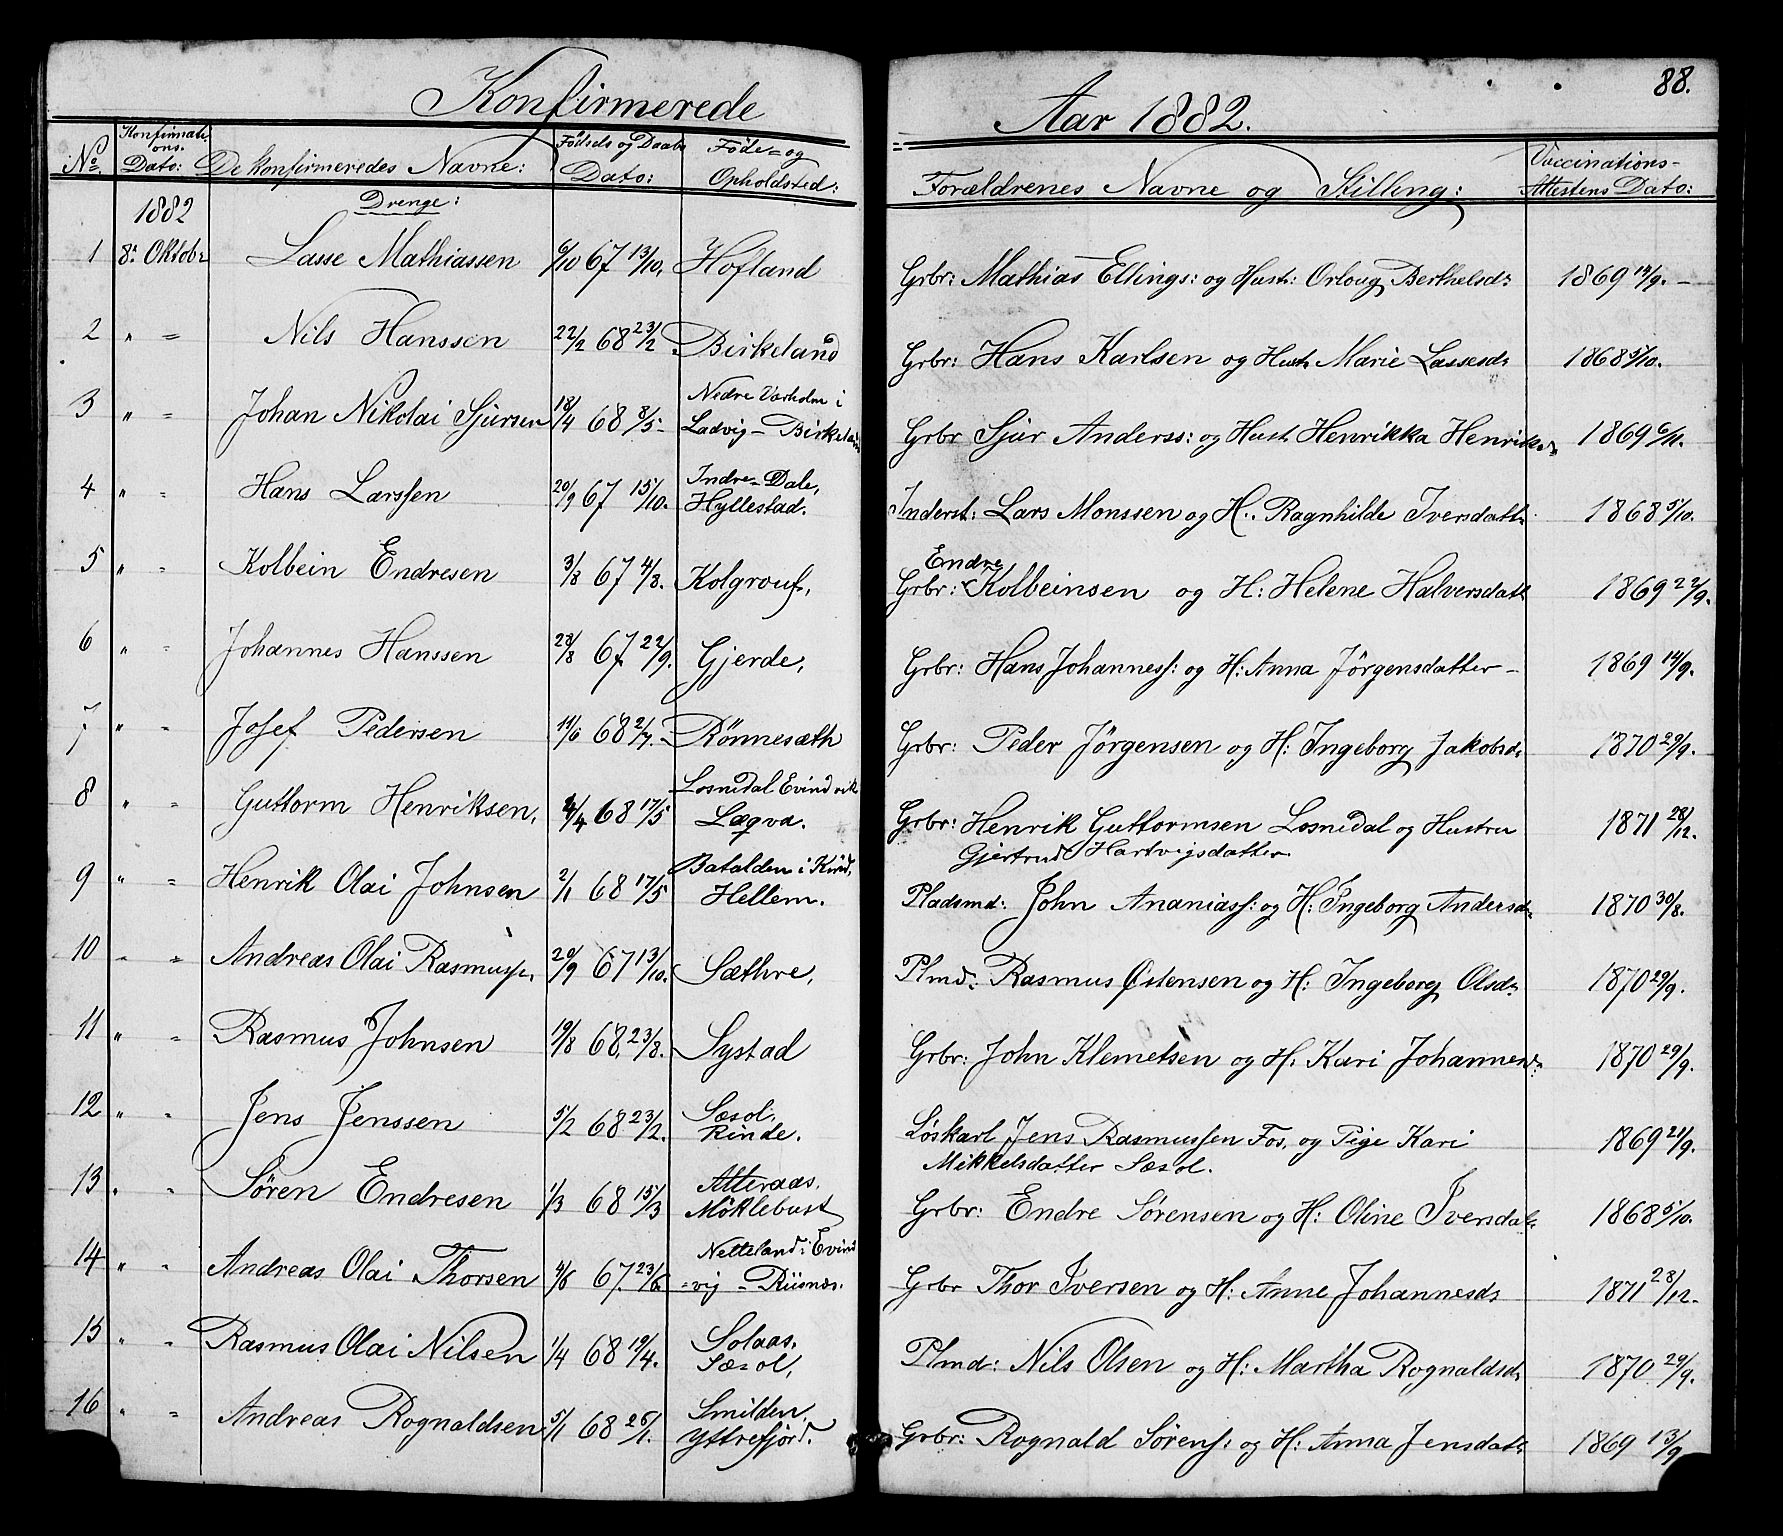 Konfirmerede
Aar 1882.
88.
No. Konfirmati-ons-Dato: De konfirmeredes Navne: Födsels og Daabs Dato: Föde- og Opholdsted: Forældrenes Navne og Stilling: Vaccinations-Attestens Dato:
1882 Drenge:
1 8: Oktobr Lasse Mathiassen 6/10 67 13/10. Hofland Grbr: Mathias Ellings: og Hustr: Orloug Berthelsd: 1869 14/9. –
2 " = Nils Hanssen 22/2 68 23/2 Birkeland Grbr: Hans Karlsen og Hustr Marie Lassesd: 1868 5/10.
3 " = Johan Nikolai Sjursen 18/4 68 3/5 - Nedre Varholm i Ladvig – Birkeland Grbr Sjur Anderss: og Hust Henrikka Henriksd. 1869 6/11.
4 " = Hans Larssen 20/9 67 15/10. Indre-Dale, Hyllestad. Inderst: Lars Monssen og H.. Ragnhilde Iversdatt: 1868 5/10.
5 " = Kolbein Endresen 3/8 67 4/8. Kolgrouf, Grbr: Endre Kolbeinsen og H: Helene Halversdatt 1869 22/9.
6 " = Johannes Hanssen 28/8 67 22/9. Gjerde, Grbr: Hans Johanness: og H: Anna Jörgensdatter – 1869 14/9.
7 " = Josef Pedersen 11/6 68 2/7. Rönnesæth Grbr: Peder Jörgensen og H: Ingeborg Jakobsd: 1870 29/9.
8 " = Guttorm Henriksen, 4/4 68 17/5 Losnedal Evindvik Lægva. Grbr: Henrik Guttormsen Losnedal og Hustru
Gjertrud Hartvigsdatter. 1871 28/12.
9 " = Henrik Olai Johnsen 2/1 68 17/5 Batalden i Kind, Hellem. Pladsmd: John Ananiass: og H: Ingeborg Andersd: 1870 30/8.
10 " = Andreas Olai Rasmuss. 20/9 67 13/10. Sæthre, Plmd: Rasmus Östensen og H: Ingeborg Olsd: 1870 29/9.
11 " = Rasmus Johnsen 19/8 68. 23/8. Systad Grbr: John Klemetsen og H: Kari Johannesd: 1870 29/9.
12 " = Jens Jenssen 5/2 68 23/2. Sæsol. Rinde. Löskarl Jens Rasmussen Fos. og Pige Kari
Mikkelsdatter Sæsol. 1869 21/9.
13 " = Sören Endresen 1/3 68 15/3 Atteraas. Möklebust Grbr: Endre Sörensen og H: Oline Iversdat: 1868 5/10.
14 " = Andreas Olai Thorsen 4/6 67. 23/6 Netteland i Evind=vig – Riisnæs. Grbr Thor Iversen og H: Anne Johannesd: 1871 28/12.
15 " = Rasmus Olai Nilsen 1/4 68 19/4. Solaas. Sæsol, Plmd: Nils Olsen og H: Martha Rognaldsd: 1870 29/9.
16 " = Andreas Rognaldsen 5/1 68 26/1. Smilden. Yttrefjord. Grbr: Rognald Sörens: og H: Anna Jensdatt: 1869 13/9